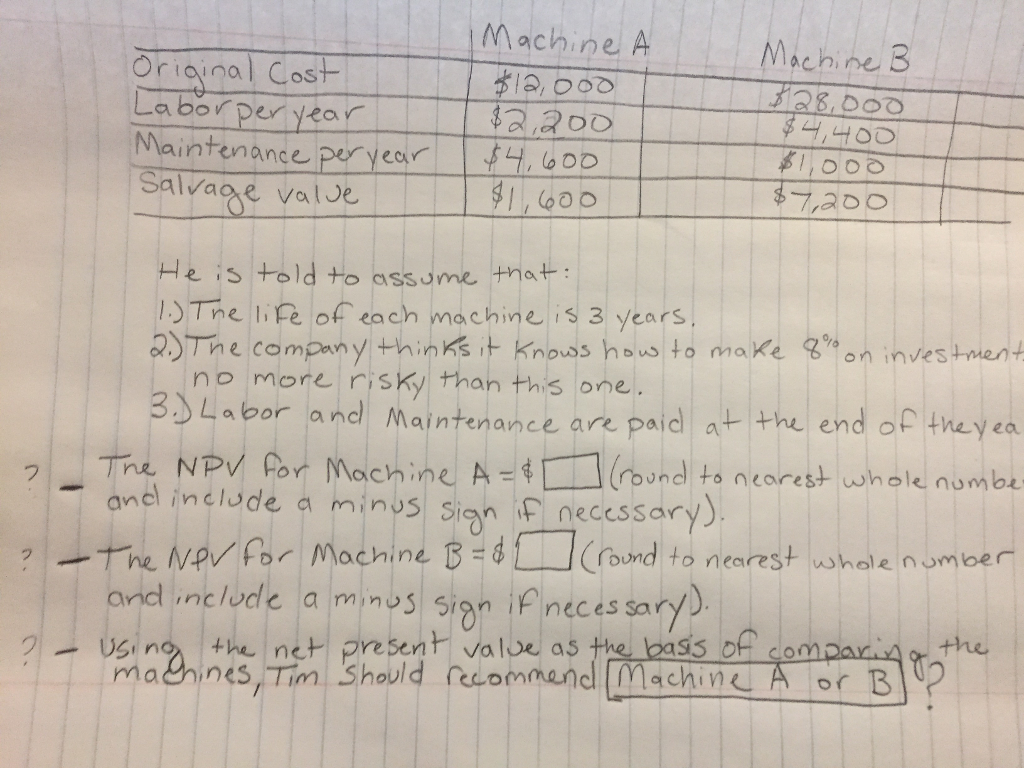 Machine A Machine B
Original Cost $12,000 $28,000
Labor per year $2,200 $4,400
Maintenance per year $4,600 $1,000
Salvage value $1,600 $7,200
He is told to assume that:
1.) The life of each machine is 3 years.
2.) The company thinks it knows how to make 8% on investment
no more risky than this one.
3.) Labor and Maintenance are paid at the end of the yea
? - The NPV for Machine A = $ (round to nearest whole numbe
and include a minus sign if necessary).
? - The NPV for Machine B = $ (round to nearest whole number
and include a minus sign if necessary).
? - Using the net present value as the basis of comparing the
machines, Tim Should recommend Machine A or B?